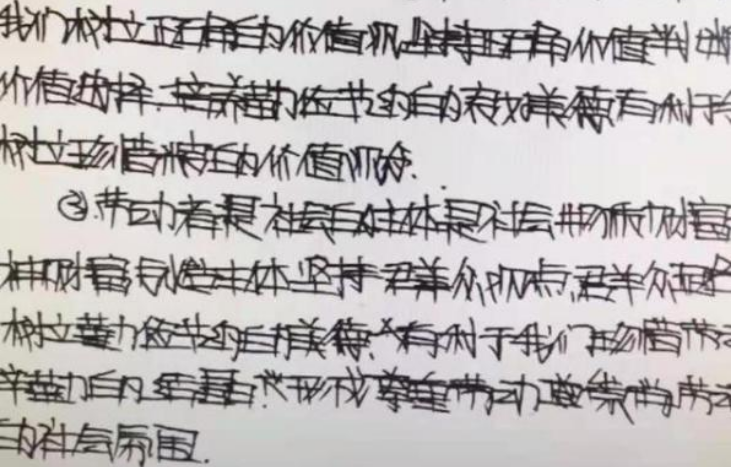 我们树立正确的价值观,坚持正确价值判断
价值选择.培养勤俭节约的传统美德,有利于
树立珍惜粮食的价值观念.
②.劳动者是社会的主体是社会物质财富
精神财富创造主体.坚持群众观点,群众路
树立勤俭节约的美德.有利于我们珍惜劳动
辛勤的结晶.形成尊重劳动,尊崇尚劳动
的社会氛围.